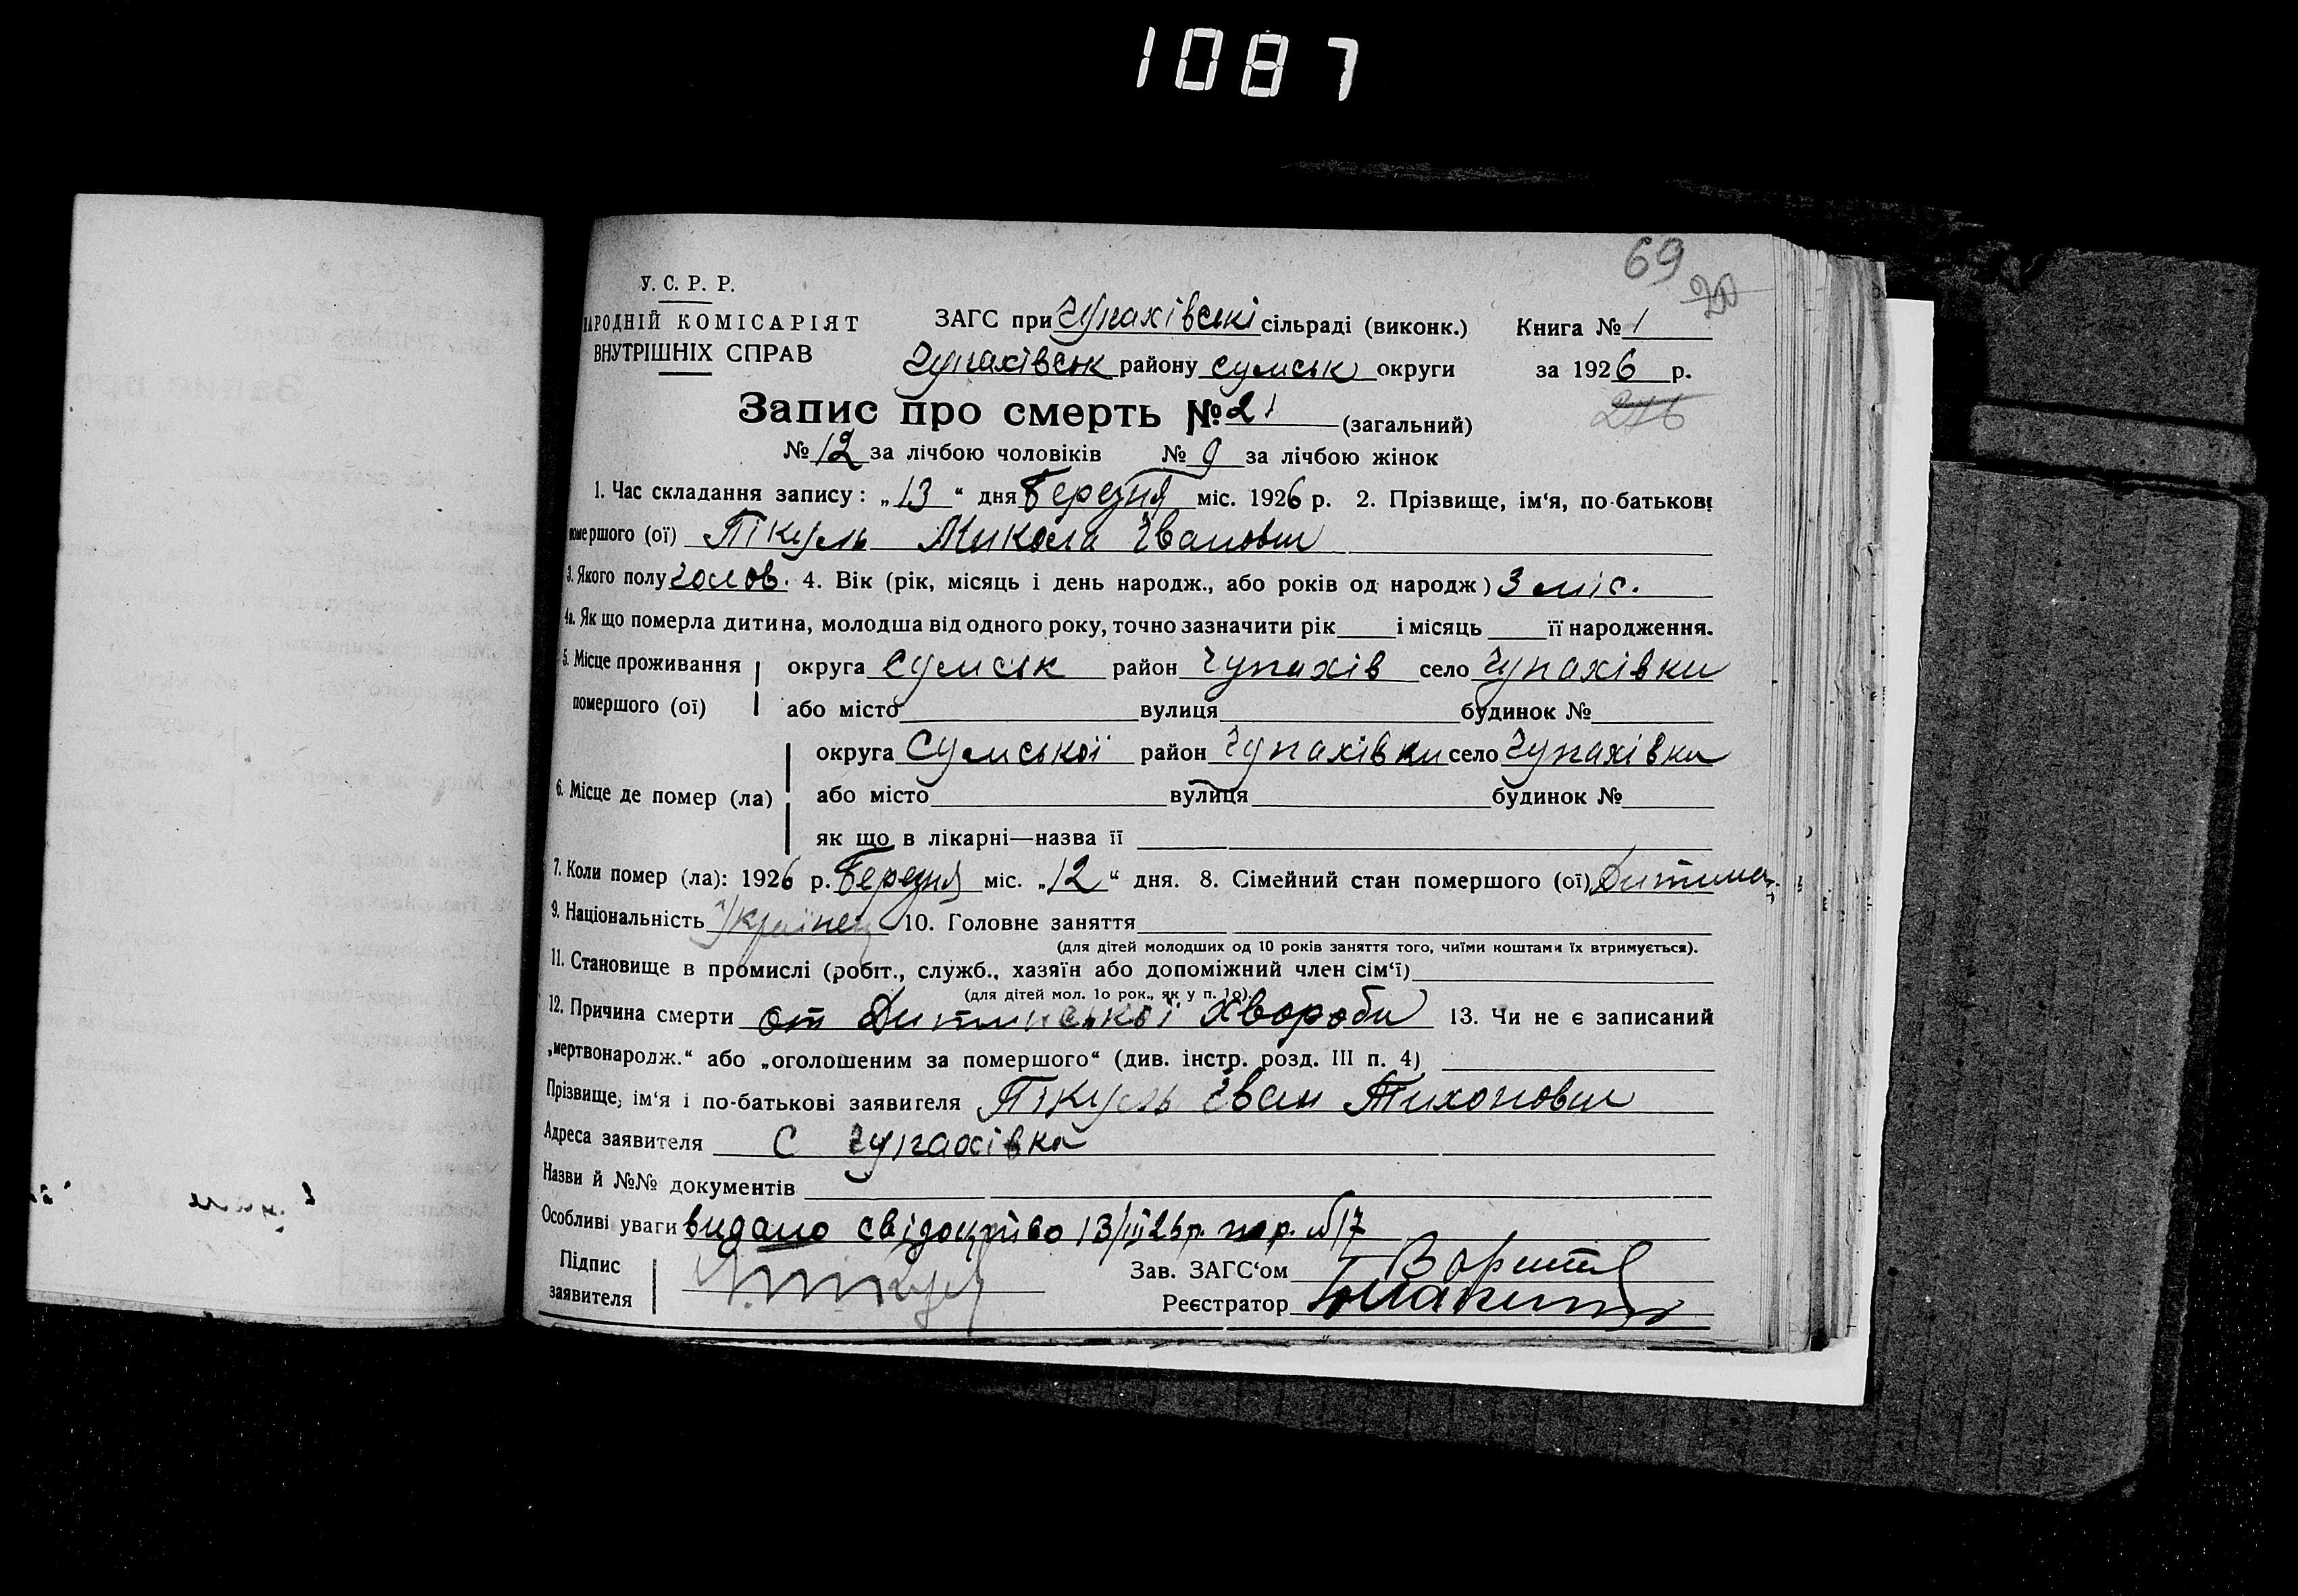 1087
69
20
У. С. Р. Р.
НАРОДНІЙ КОМІСАРІЯТ
ВНУТРІШНІХ СПРАВ
ЗАГС при Чупахівські сільраді (виконк.) Книга № 1
Чупахівськ району Сумськ округи за 1926 р.
Запис про смерть № 21 (загальний)
216
№ 12 за лічбою чоловіків № 9 за лічбою жінок
1. Час складання запису: „13“ дня Березня міс. 1926 р. 2. Прізвище, ім‘я, по-батькові
помершого (ої) Пікуль Микола Іванович
3. Якого полу Чолов. 4. Вік (рік, місяць і день народж., або років од народж) 3 міс.
4а. Як що померла дитина, молодша від одного року, точно зазначити рік і місяць її народження.
5. Місце проживання округа Сумськ район Чупахів село Чупахівки
помершого (ої) або місто вулиця будинок №
округа Сумської район Чупахівки село Чупахівки
6. Місце де помер (ла) або місто вулиця будинок №
як що в лікарні—назва її
7. Коли помер (ла): 1926 р. Березня міс. „12“ дня. 8. Сімейний стан помершого (ої) Дитина.
9. Національність Українец 10. Головне заняття
(для дітей молодших од 10 років заняття того, чиїми коштами їх втримується).
11. Становище в промислі (робіт., служб., хазяїн або допоміжний член сім‘ї)
(для дітей мол. 1о рок., як у п. 1о).
12. Причина смерти от Дитинської хвороби 13. Чи не є записаний
„мертвонародж.“ або „оголошеним за помершого“ (див. інстр. розд. III п. 4)
Прізвище, ім‘я і по-батькові заявителя Пікуль Іван Тихонович
Адреса заявителя С Чупахівка
Назви й №№ документів
Особливі уваги видано свідоцтво 13/III 26 р. пор. № 17
Підпис
заявителя
Зав. ЗАГС‘ом
Реєстратор